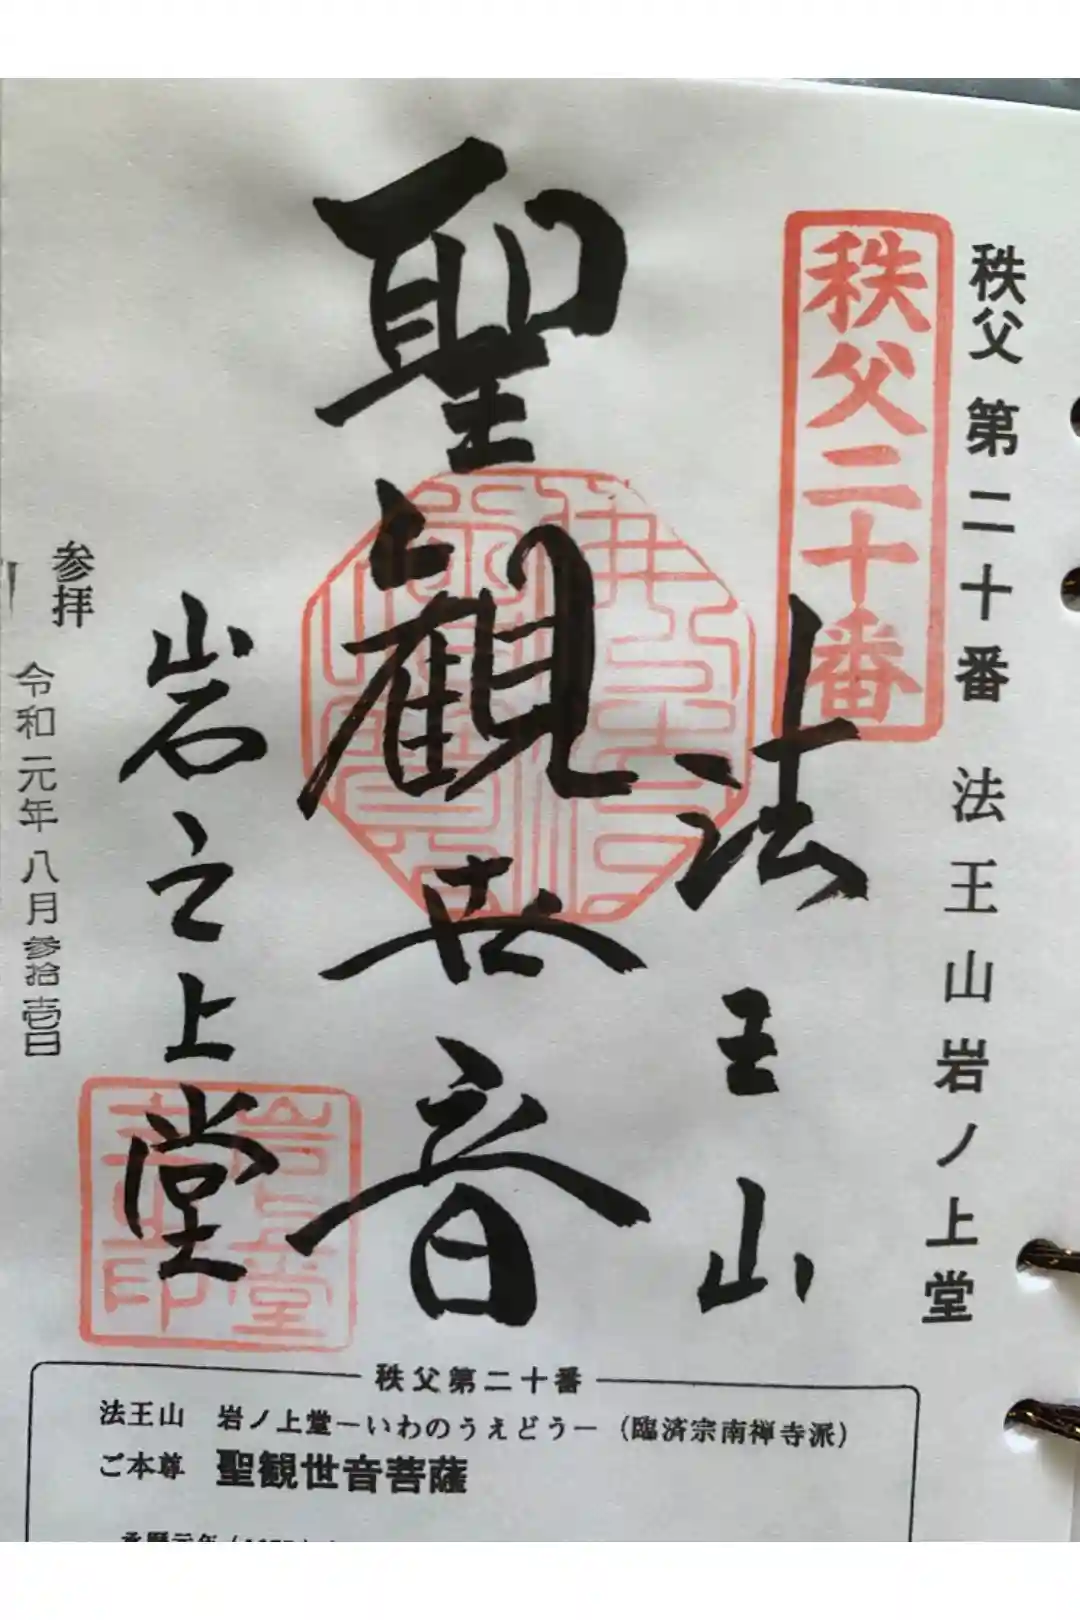 秩父 第二十番 法王山岩ノ上堂
秩父二十番
法王山
聖観世音
岩之上堂
岩上堂
印
参拝 令和元年八月参拾壱日
秩父第二十番
法王山 岩ノ上堂－いわのうえどう－（臨済宗南禅寺派）
ご本尊 聖観世音菩薩